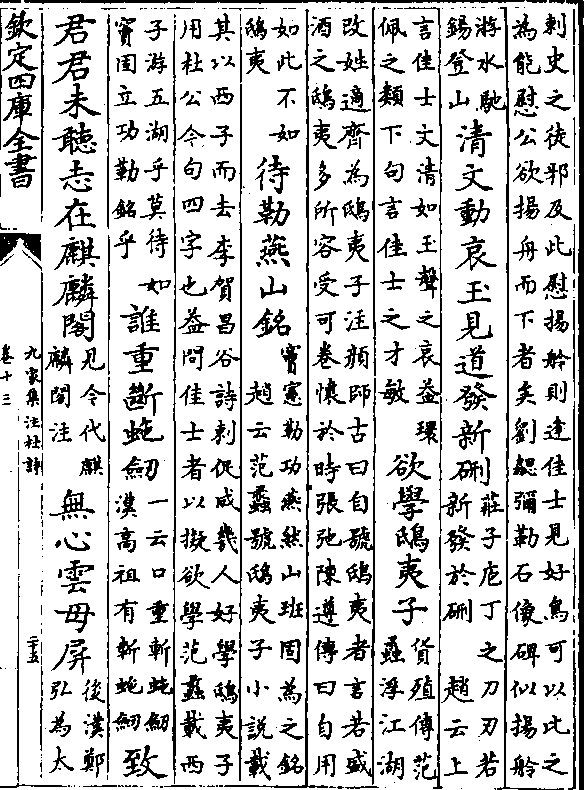 刺史之徒邪及此慰揚舲則逹佳士見好鳥可以此之
為能慰公欲揚舟而下者矣劉勰彌勒石像碑似揚舲
游水馳
錫登山
清文動哀玉見道發新硎
莊子庖丁之刀刃若
新發於硎 趙云上
言佳士文清如玉聲之哀益環
佩之類下句言佳士之才敏
欲學鴟夷子
貨殖傳范
蠡浮江湖
改姓適齊為鴟夷子注顔師古曰自號鴟夷者言若盛
酒之鴟夷多所容受可卷懷於時張弛陳遵傳曰自用
如此不如
鴟夷
待勒燕山銘
竇憲勒功燕然山班固為之銘
趙云范蠡號鴟夷子小說載
其以西子而去李賀昌谷詩刺促成幾人好學鴟夷子
用杜公令句四字也益問佳士者以擬欲學范蠡載西
子游五湖乎莫待如
竇固立功勒銘乎
誰重斷蛇劒
一云口重斬蛇劒
漢高祖有斬蛇劒
致
君君未聽志在麒麟閣
見今代麒
麟閣注
無心雲母屏
後漢鄭
弘為太
欽定四庫全書
九家集注杜詩
卷十三
二十五